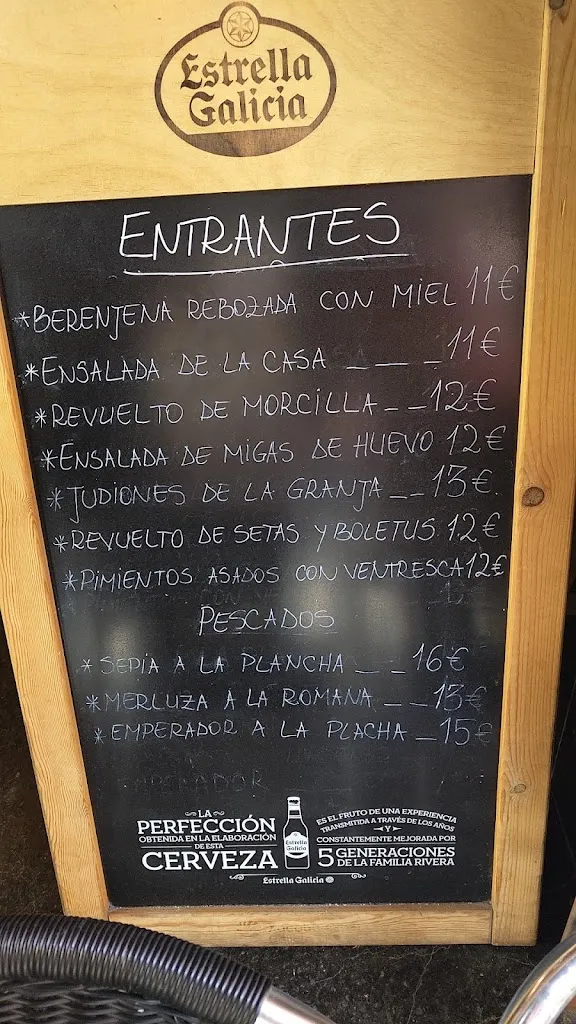 Estrella
Galicia
ENTRANTES
*BERENJENA REBOZADA CON MIEL 11€
*ENSALADA DE LA CASA _ _ _ 11€
*REVUELTO DE MORCILLA _ _ 12€
*ENSALADA DE MIGAS DE HUEVO 12€
*JUDIONES DE LA GRANJA _ _ 13€.
*REVUELTO DE SETAS Y BOLETUS 12€
*PIMIENTOS ASADOS CON VENTRESCA 12€
PESCADOS
*SEPIA A LA PLANCHA _ _ 16€
*MERLUZA A LA ROMANA _ _ 13€
*EMPERADOR A LA PLACHA _ 15€
EMPERADOR
LA
PERFECCIÓN
OBTENIDA EN LA ELABORACIÓN
DE ESTA
CERVEZA
Estrella
Galicia
ES EL FRUTO DE UNA EXPERIENCIA
TRANSMITIDA A TRAVÉS DE LOS AÑOS
Y
CONSTANTEMENTE MEJORADA POR
5 GENERACIONES
DE LA FAMILIA RIVERA
Estrella Galicia